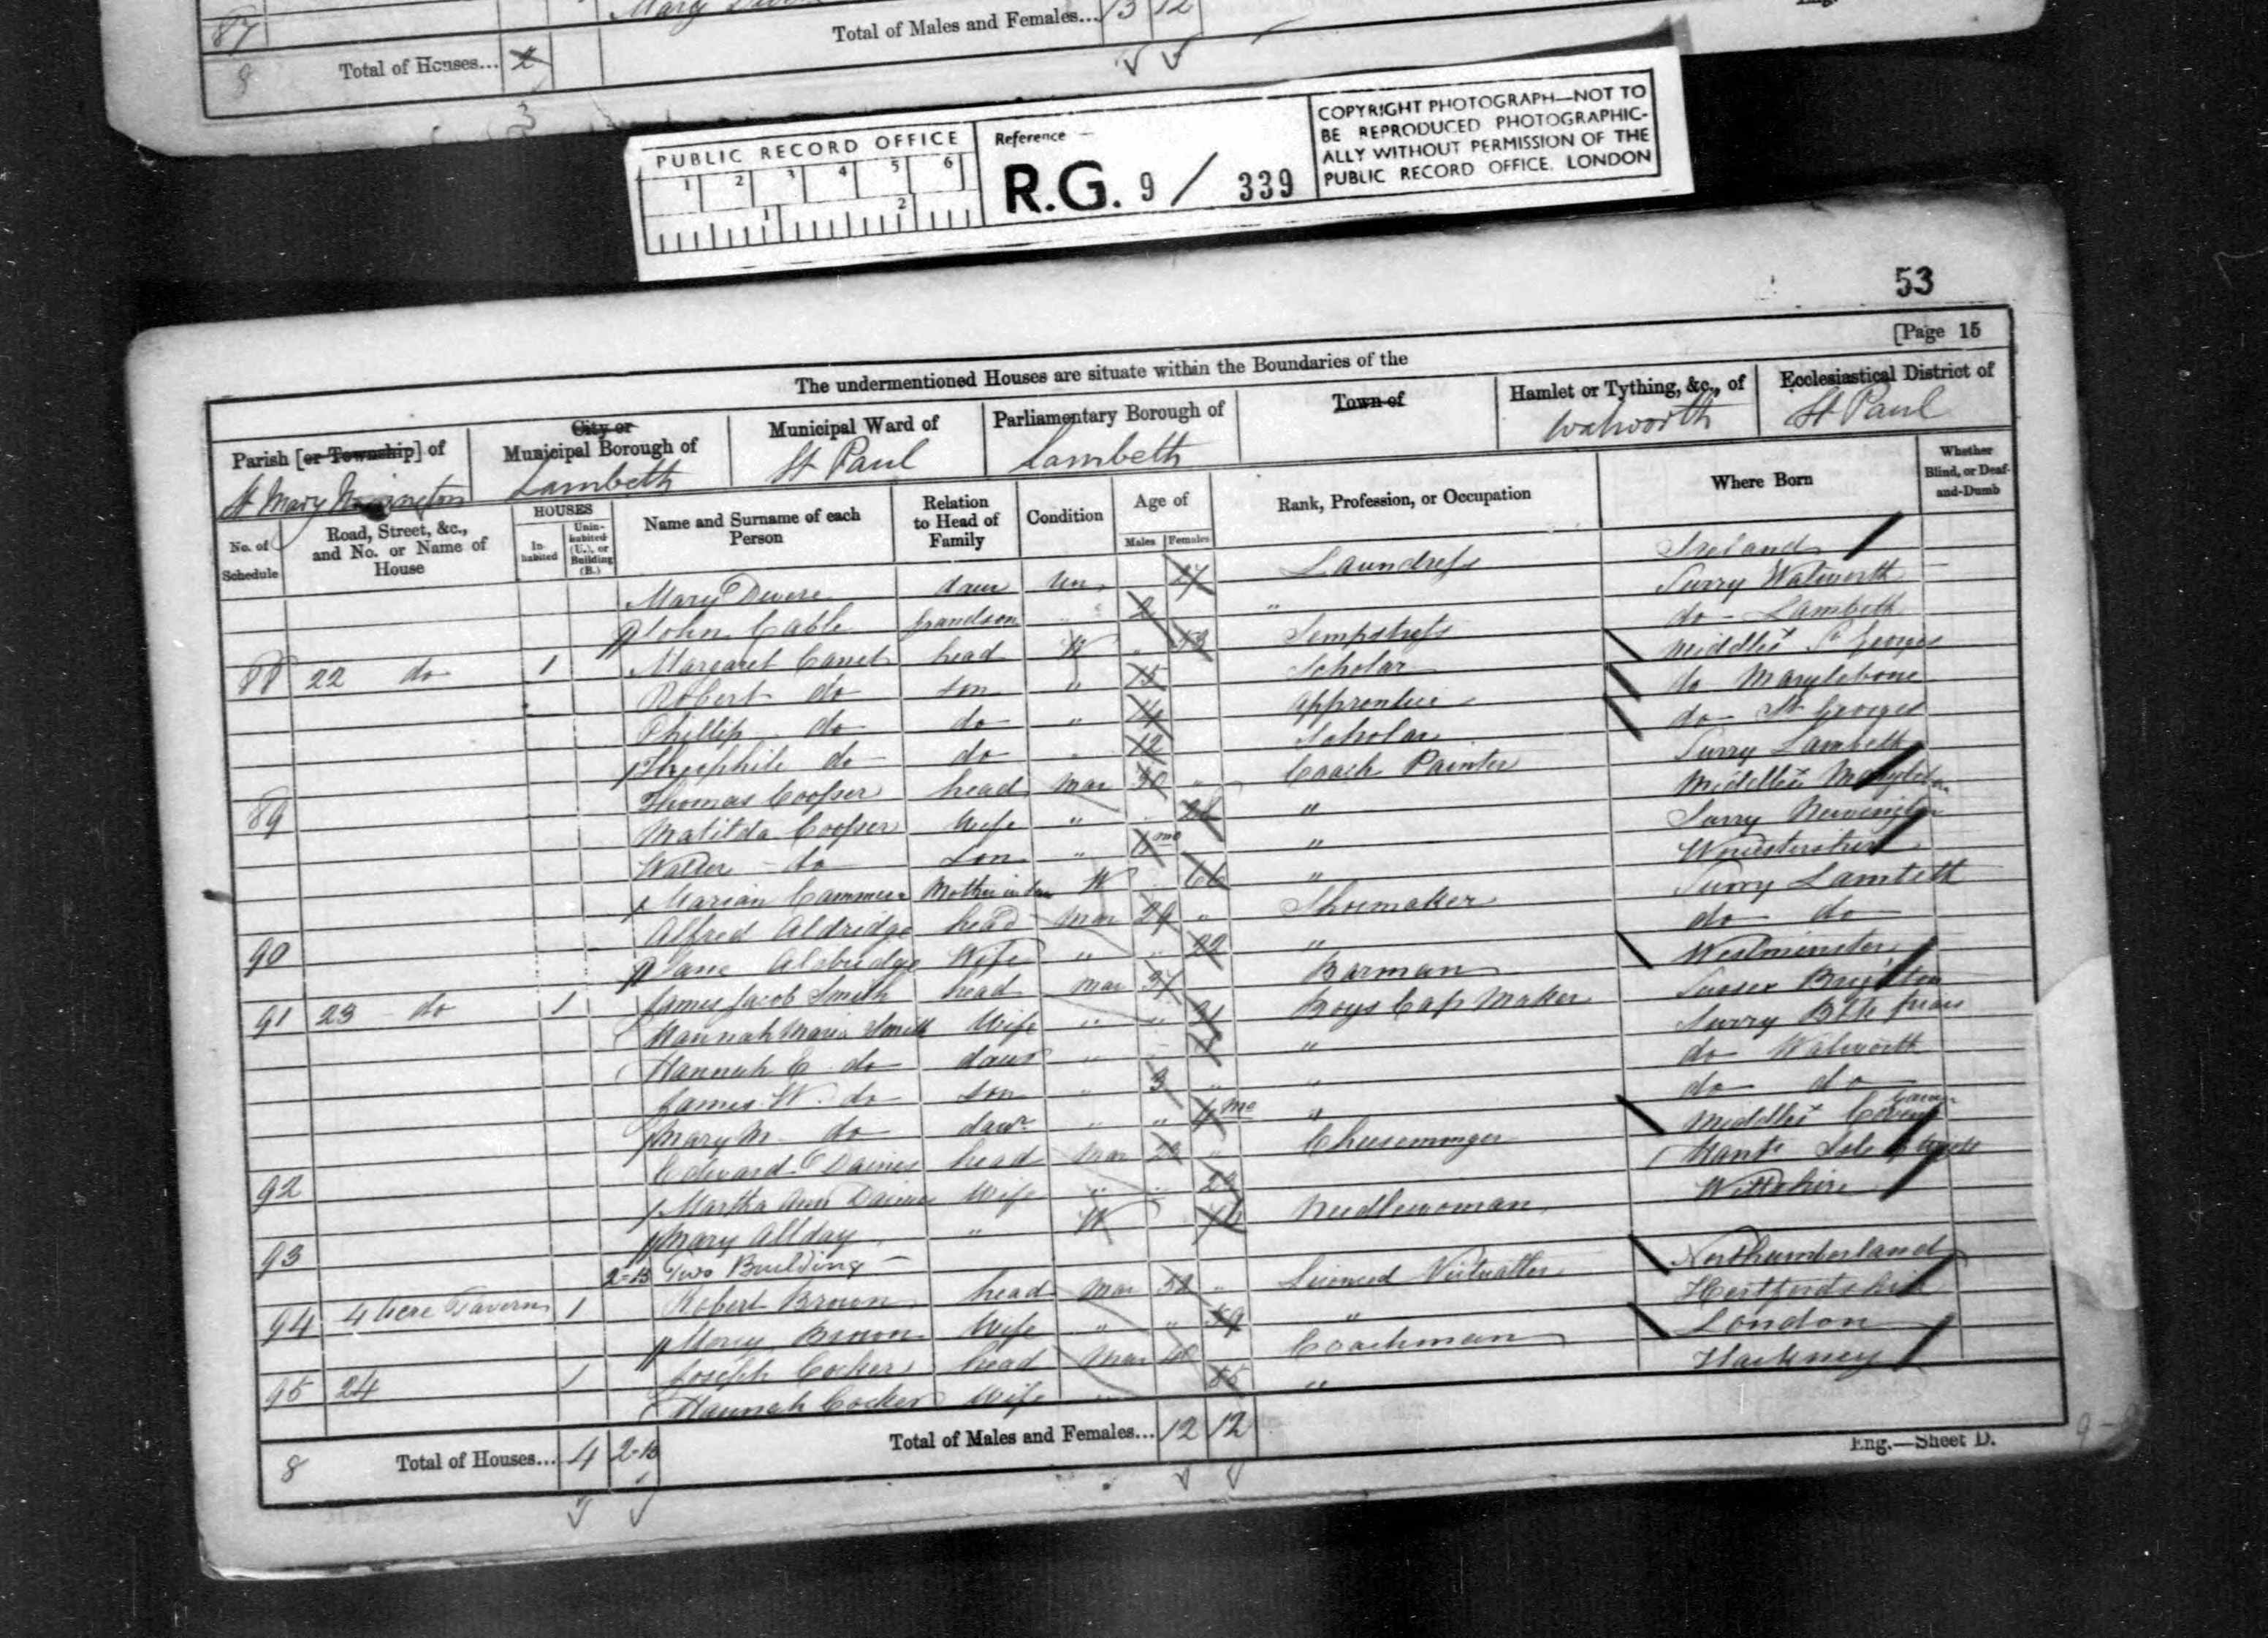 87
Total of Males and Females... 13 12
8 Total of Houses... 2
3
PUBLIC RECORD OFFICE
1 2 3 4 5 6
1 2
Reference
R.G. 9 / 339
COPYRIGHT PHOTOGRAPH—NOT TO
BE REPRODUCED PHOTOGRAPHIC-
ALLY WITHOUT PERMISSION OF THE
PUBLIC RECORD OFFICE. LONDON
53
[Page 15
The undermentioned Houses are situate within the Boundaries of the
Parish [or Township] of
City or Municipal Borough of
Municipal Ward of
Parliamentary Borough of
Town of
Hamlet or Tything, &c., of
Ecclesiastical District of
St Mary Lambeth St Paul Lambeth Walworth St Paul
No. of Schedule
Road, Street, &c., and No. or Name of House
HOUSES
Inhabited
Uninhabited (U.), or Building (B.)
Name and Surname of each Person
Relation to Head of Family
Condition
Age of
Males Females
Rank, Profession, or Occupation
Where Born
Whether Blind, or Deaf-and-Dumb
Mary daur Un 27 Laundress Ireland
John Cable grandson " 2 " Surry Walworth
88 22 do 1 Margaret head W Sempstress do Lambeth
Robert do son " 15 Scholar Middlx St Georges
Phillip do do " 14 Apprentice do Marylebone
do do 12 Scholar do St Georges
89 Thomas Cooper head Mar 30 " Coach Painter Surry Lambeth
Matilda Cooper Wife " 28 " Middlx
Walter do Son " mo " Surry Newington
Marian Mother in law W 66 " Worcestershire
90 Alfred Aldridge head Mar 29 " Shoemaker Surry Lambeth
Jane Wife " 22 " do do
91 23 do 1 James Jacob Smith head Mar 37 Barman Westminster
Hannah Maria Smith Wife " " 31 Boys Cap Maker Sussex Brighton
Hannah E do daur " " Surry
James W. do son " 3 " " do Walworth
Mary M. do daur " " mo " do do
92 Edward Daines head Mar " Cheesemonger Middlx Covent Garden
Martha Ann Wife " 23 Hants Isle
93 Mary Allday " W Needlewoman Wiltshire
2-B Two Building
94 4 Acre Tavern 1 Robert Brown head Mar 52 " Licensed Victualler Northumberland
Brown Wife " " 59 " Hertfordshire
95 24 1 Joseph Cocker head Mar 40 Coachman London
Hannah Cocker Wife " " Hackney
8 Total of Houses... 4 2-B Total of Males and Females... 12 12
Eng.—Sheet D.